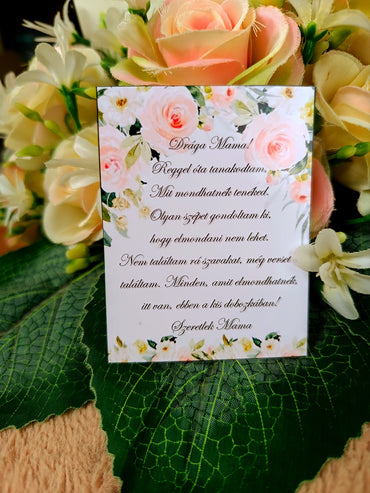 Drága Mama!
Reggel óta tanakodtam,
Mit mondhatnék teneked.
Olyan szépet gondoltam ki,
hogy elmondani nem lehet.
Nem találtam rá szavakat, még verset
találtam. Minden, amit elmondhatnék,
itt van, ebben a kis dobozkában!
Szeretlek Mama